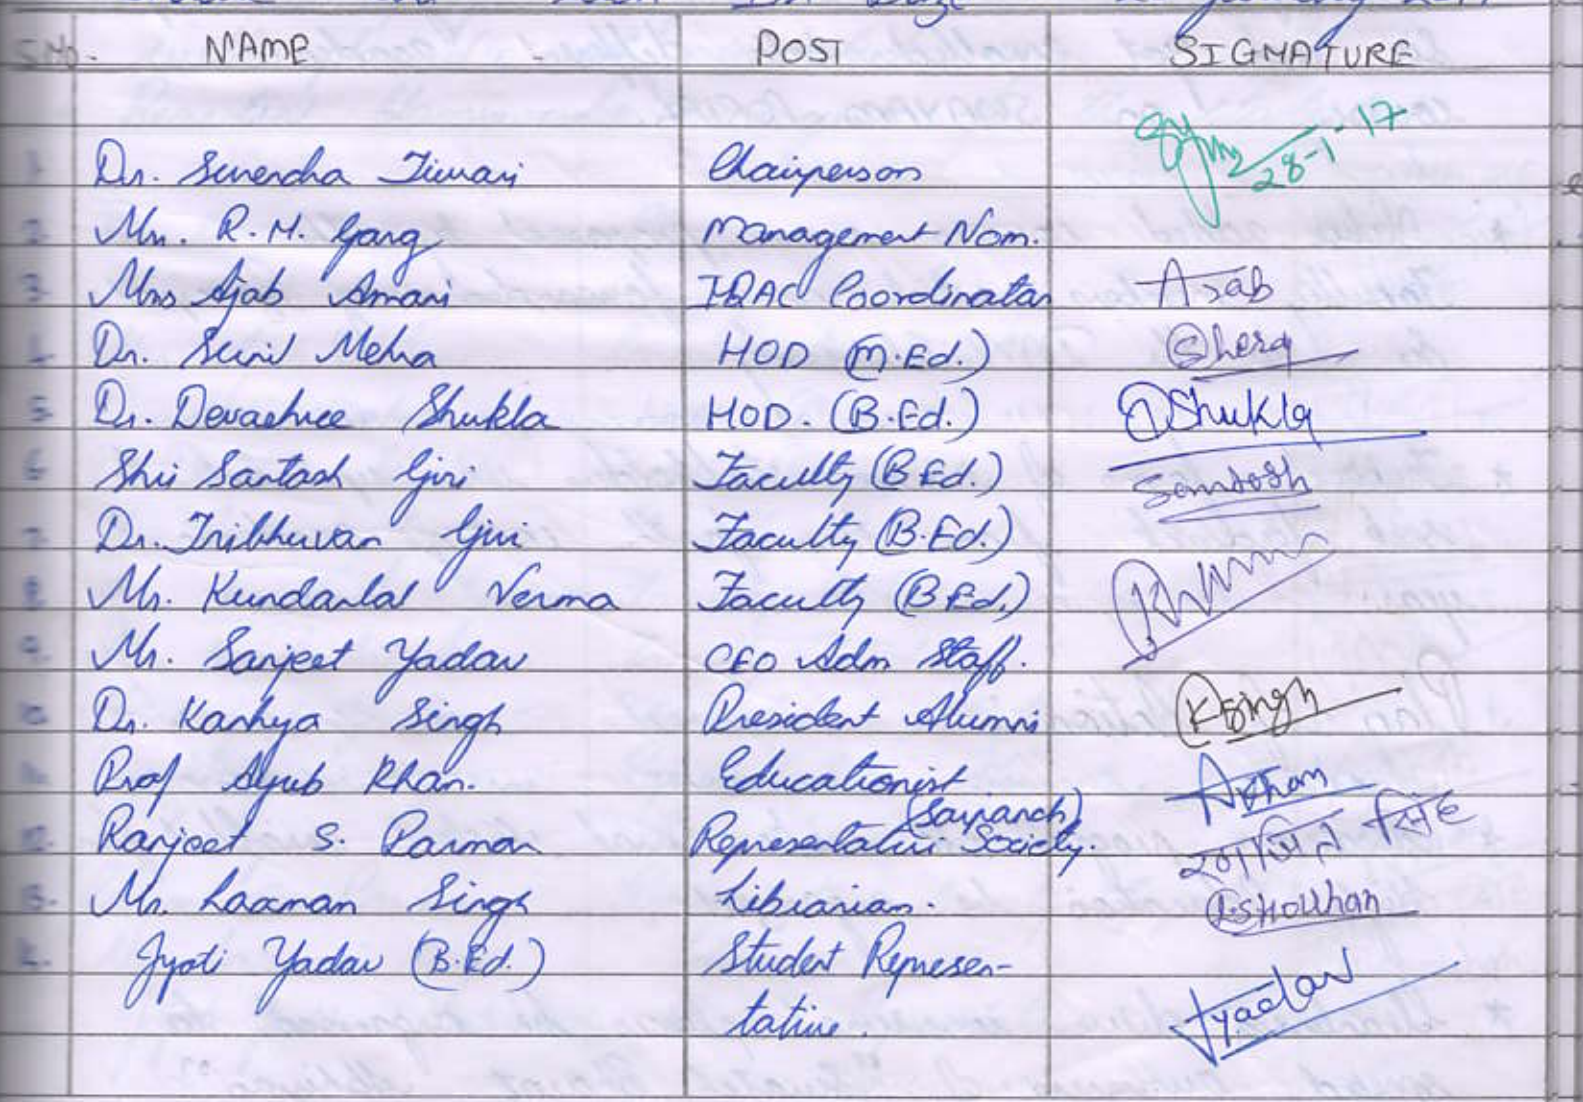 S.No. NAME POST SIGNATURE
28-1-17
1 Dr. Surendra Tiwari Chairperson
2 Mr. R.M. Garg Management Nom.
3 Mrs Ajab Amari IQAC Coordinator Ajab
4 Dr. Sunil Mehra HOD (M.Ed.)
5 Dr. Devashree Shukla HOD. (B.Ed.) DShukla
6 Shri Santosh Giri Faculty (B.Ed.) Santosh
7. Dr. Tribhuvan Giri Faculty (B.Ed.)
8 Mr. Kundanlal Verma Faculty (B.Ed.)
9. Mr. Sanjeet Yadav CEO Adm Staff.
10 Dr. Kanhya Singh President Alumni KSingh
11 Prof Ayub Khan. Educationist AKhan
(Sarpanch)
12. Ranjeet S. Parmar Representative Society. रणजित सिंह
13. Mr. Laxman Singh Librarian. L.S.Houhan
14. Jyoti Yadav (B.Ed.) Student Represen- Jyadav
tative.